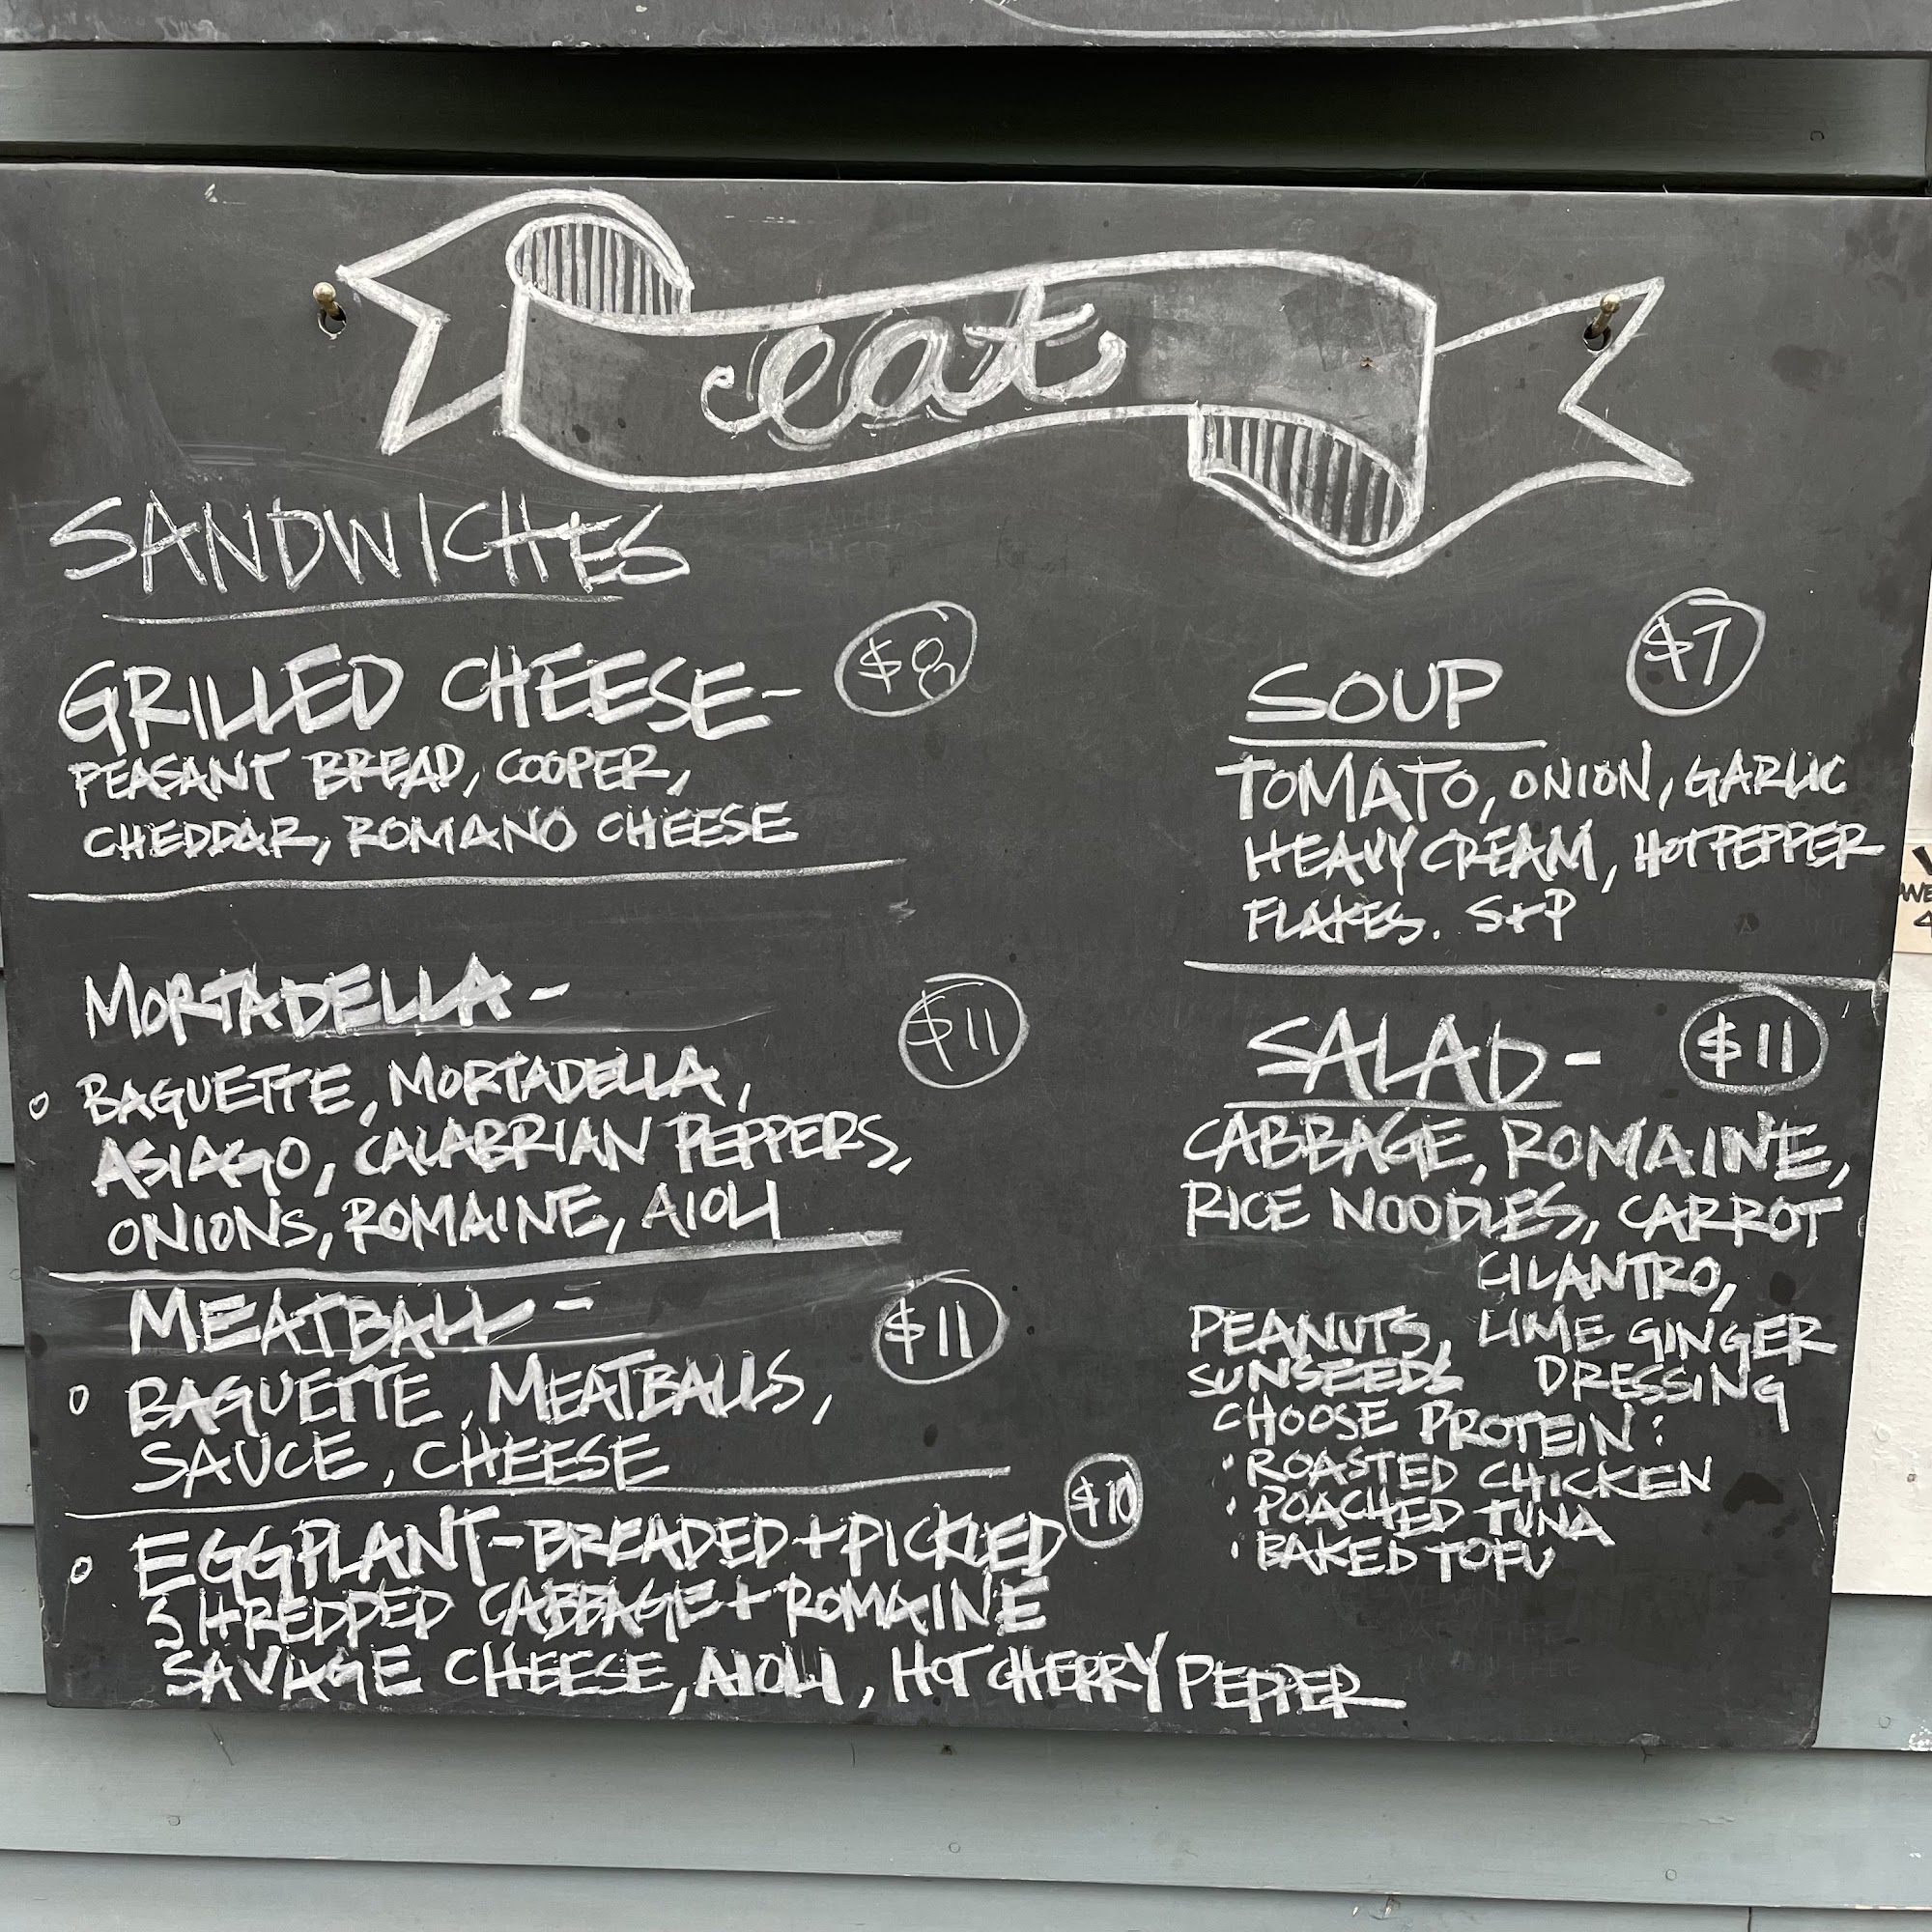 eat
SANDWICHES
GRILLED CHEESE- $8
PEASANT BREAD, COOPER,
CHEDDAR, ROMANO CHEESE
MORTADELLA - $11
BAGUETTE, MORTADELLA,
ASIAGO, CALABRIAN PEPPERS,
ONIONS, ROMAINE, AIOLI
MEATBALL - $11
BAGUETTE, MEATBALLS,
SAUCE, CHEESE
EGGPLANT-BREADED + PICKLED $10
SHREDDED CABBAGE + ROMAINE
SAVAGE CHEESE, AIOLI, HOT CHERRY PEPPER
SOUP $7
TOMATO, ONION, GARLIC
HEAVY CREAM, HOT PEPPER
FLAKES. S+P
SALAD - $11
CABBAGE, ROMAINE,
RICE NOODLES, CARROT
CILANTRO,
PEANUTS, LIME GINGER
SUNSEEDS DRESSING
CHOOSE PROTEIN:
• ROASTED CHICKEN
• POACHED TUNA
• BAKED TOFU